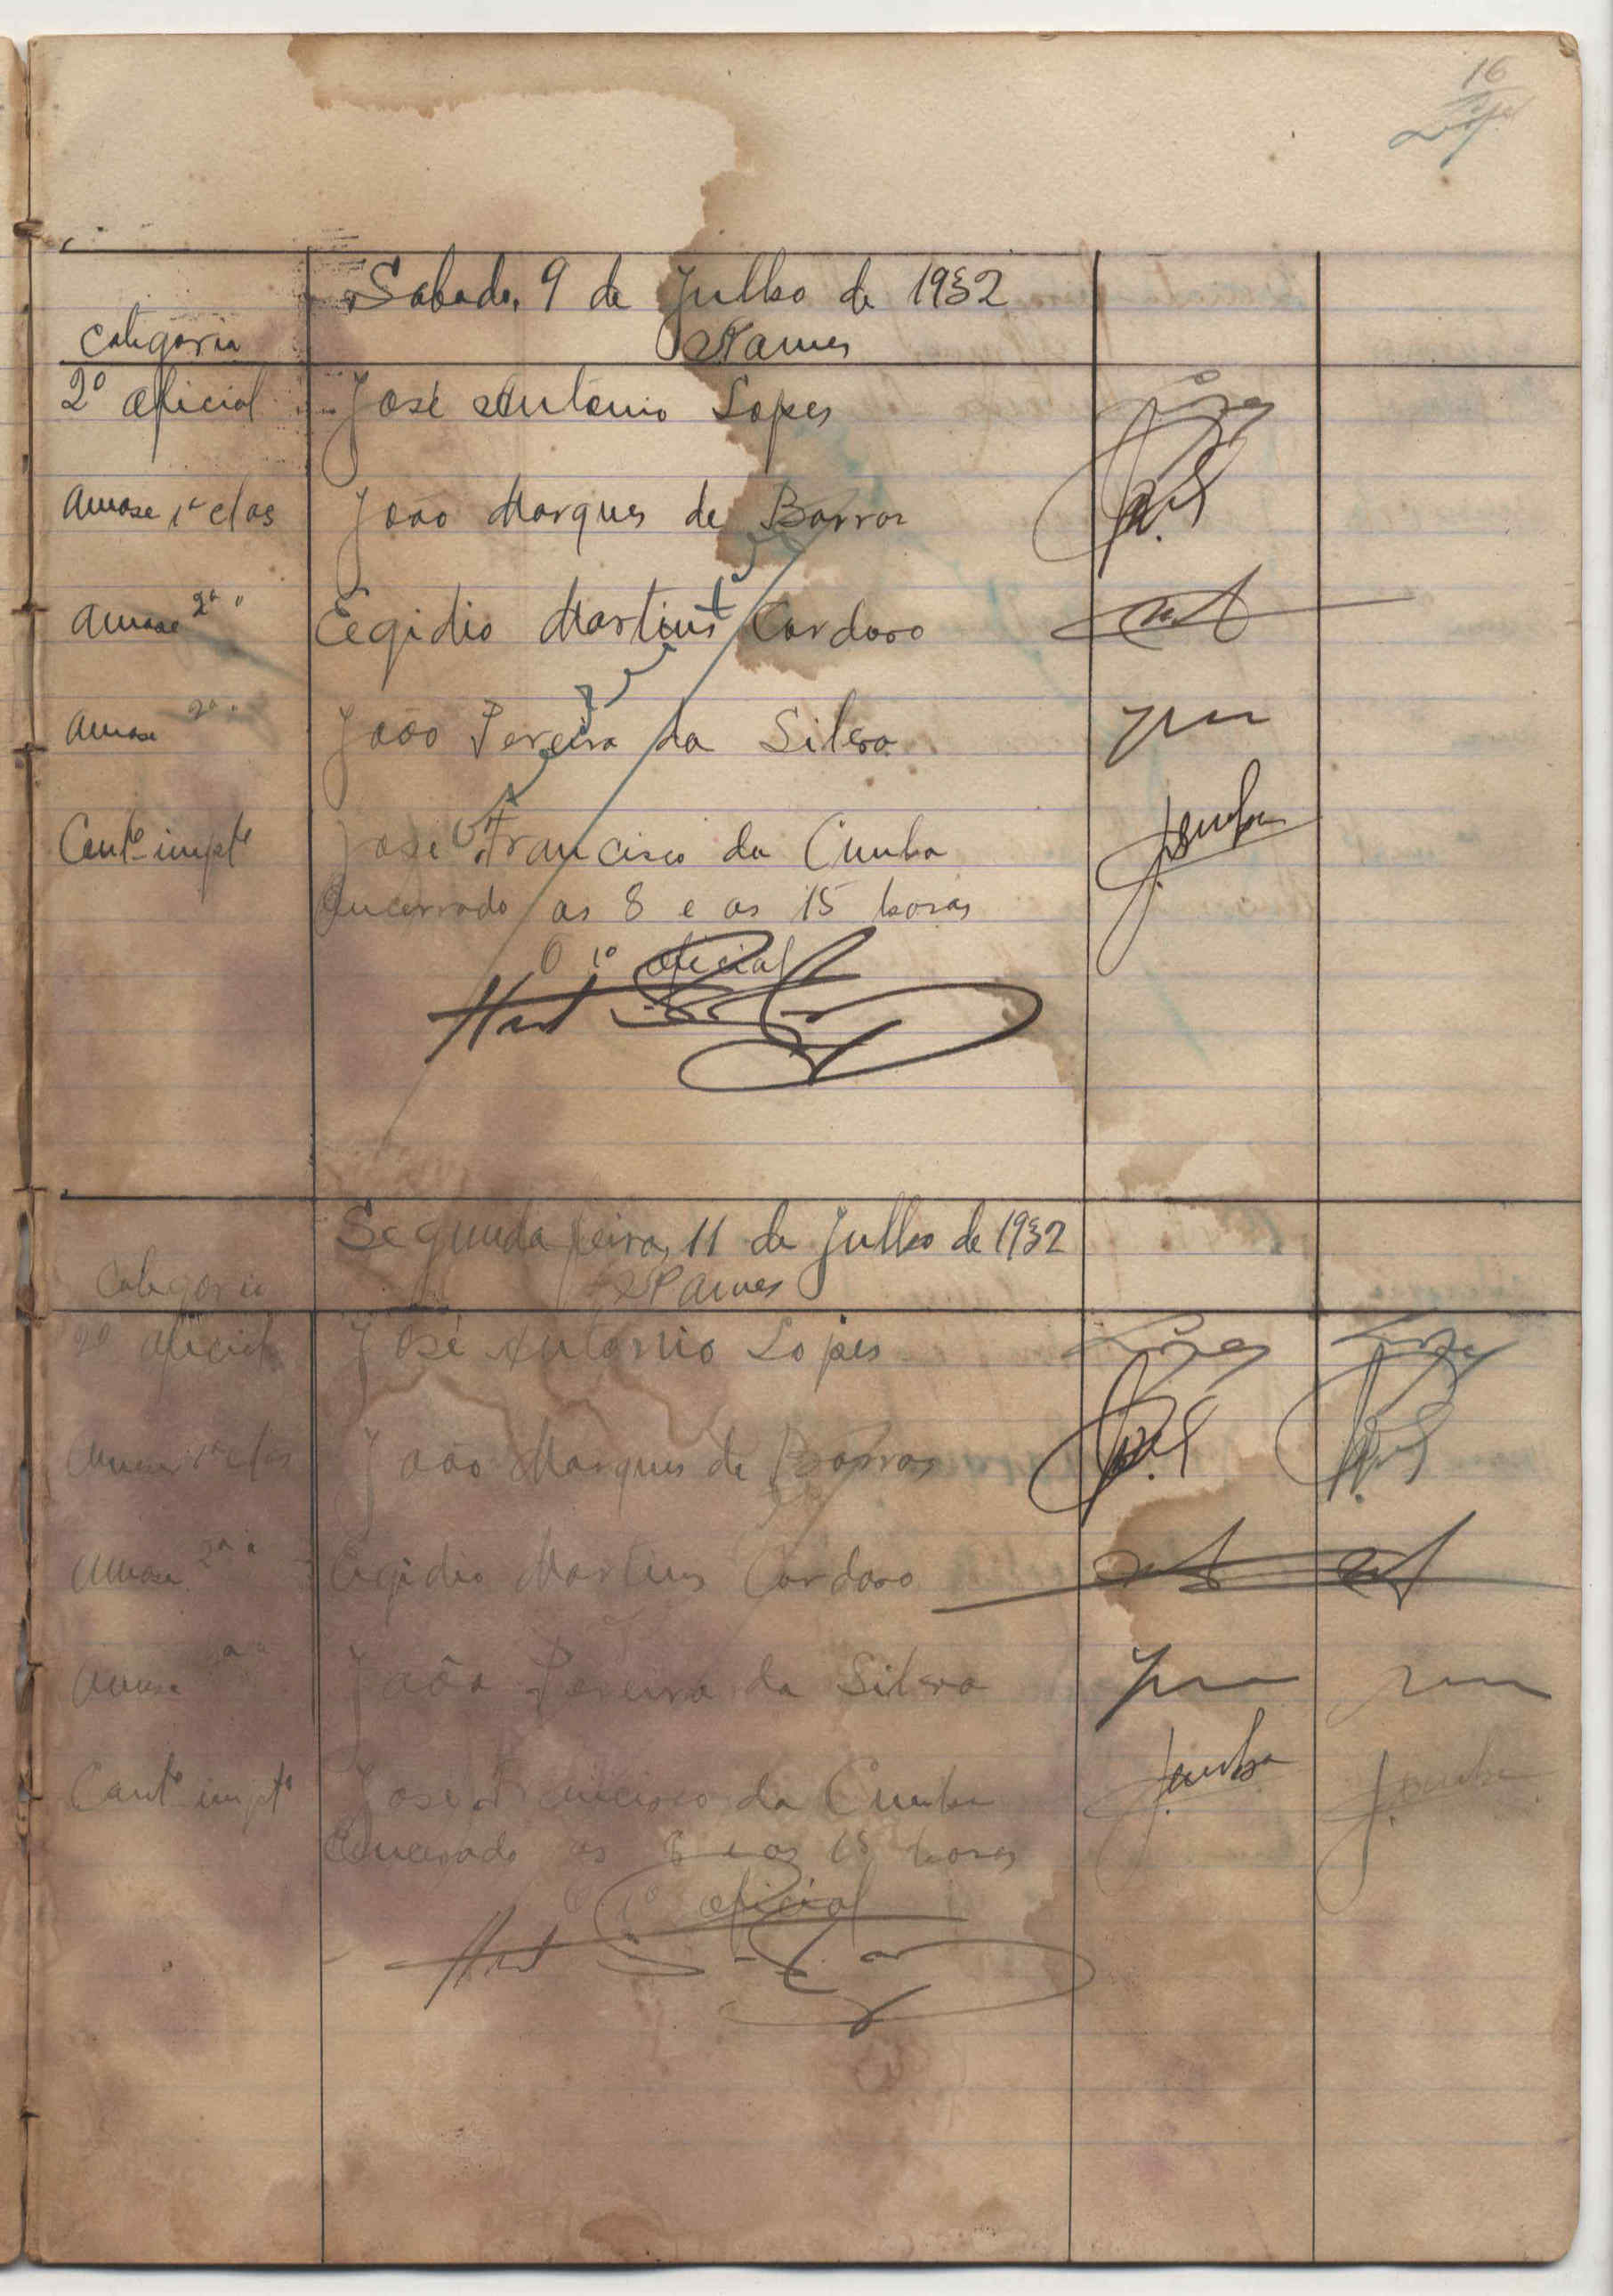 16
Lopes
Sabado, 9 de Julho de 1932
Categoria Nomes
2º oficial José Antonio Lopes Lopes
Amase 1ª clas João Marques de Barros
Amase 2ª " Egidio Martins Cardoso
Amase 2ª " João Pereira da Silva
Contº impto José Francisco da Cunha JCunha
Encerrado as 8 e as 15 horas
O 1º oficial
Segunda feira, 11 de Julho de 1932
Categoria Nomes
2º oficial José Antonio Lopes Lopes Lopes
Amase 1ª clas João Marques de Barros
Amase 2ª " Egidio Martins Cardoso
Amase 2ª " João Pereira da Silva
Contº impto José Francisco da Cunha JCunha JCunha
Encerrado as 8 e as 15 horas
O 1º oficial